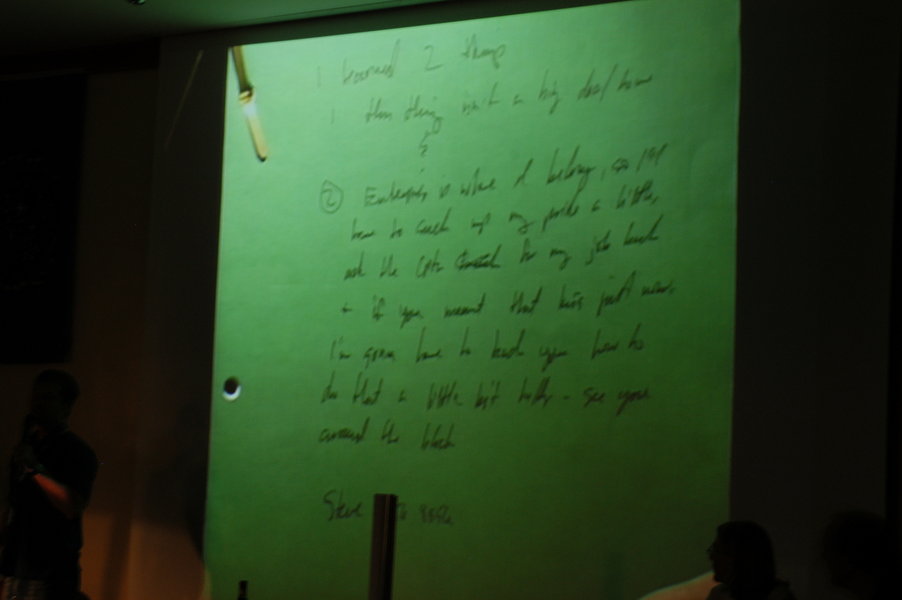 I learned 2 things
1 this thing isn't a big deal here
?
② Enterprise is where I belong, so I'll
have to suck up my pride a little,
ask the Cptn for my job back
+ if you meant that kiss just now,
I'm gonna have to teach you how to
do that a little bit better - see you
around the block
Steve